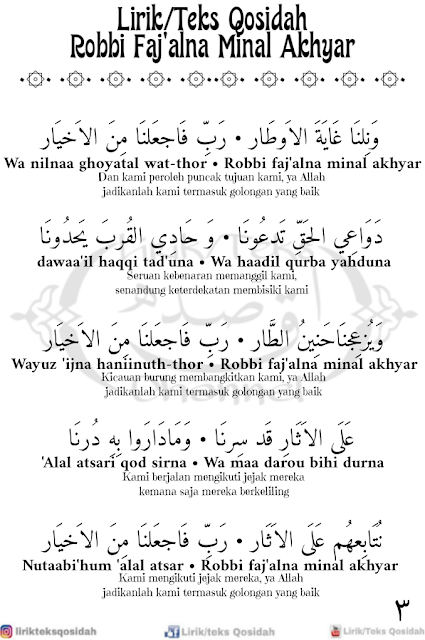 Lirik/Teks Qosidah
Robbi Faj'alna Minal Akhyar
وَنِلنَا غَايَةَ الاَوطَار • رَبِّ فَاجعَلنَا مِنَ الاَخيَار
Wa nilnaa ghoyatal wat-thor • Robbi faj'alna minal akhyar
Dan kami peroleh puncak tujuan kami, ya Allah
jadikanlah kami termasuk golongan yang baik
دَوَاعِي الحَقِّ تَدعُونَا • وَ حَادِي القُربَ يَحدُونَا
dawaa'il haqqi tad'una • Wa haadil qurba yahduna
Seruan kebenaran memanggil kami,
senandung keterdekatan membisiki kami
وَيُزعِجنَاحَنِينُ الطَّار • رَبِّ فَاجعَلنَا مِنَ الاَخيَار
Wayuz 'ijna haniinuth-thor • Robbi faj'alna minal akhyar
Kicauan burung membangkitkan kami, ya Allah
jadikanlah kami termasuk golongan yang baik
عَلَى الاَثَارِ قَد سِرنَا • وَمَادَارَوا بِهِ دُرنَا
'Alal atsari qod sirna • Wa maa darou bihi durna
Kami berjalan mengikuti jejak mereka
kemana saja mereka berkeliling
نُتَابِعهُم عَلَى الاَثَار • رَبِّ فَاجعَلنَا مِنَ الاَخيَار
Nutaabi'hum 'alal atsar • Robbi faj'alna minal akhyar
Kami mengikuti jejak mereka, ya Allah
jadikanlah kami termasuk golongan yang baik
٣
lirikteksqosidah
Lirik/teks Qosidah
Lirik/Teks Qosidah